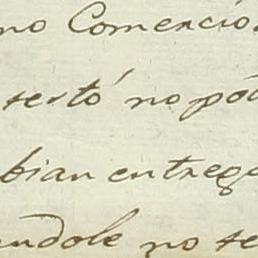 no Comercio
testó no pod
bian entrega
endole no se